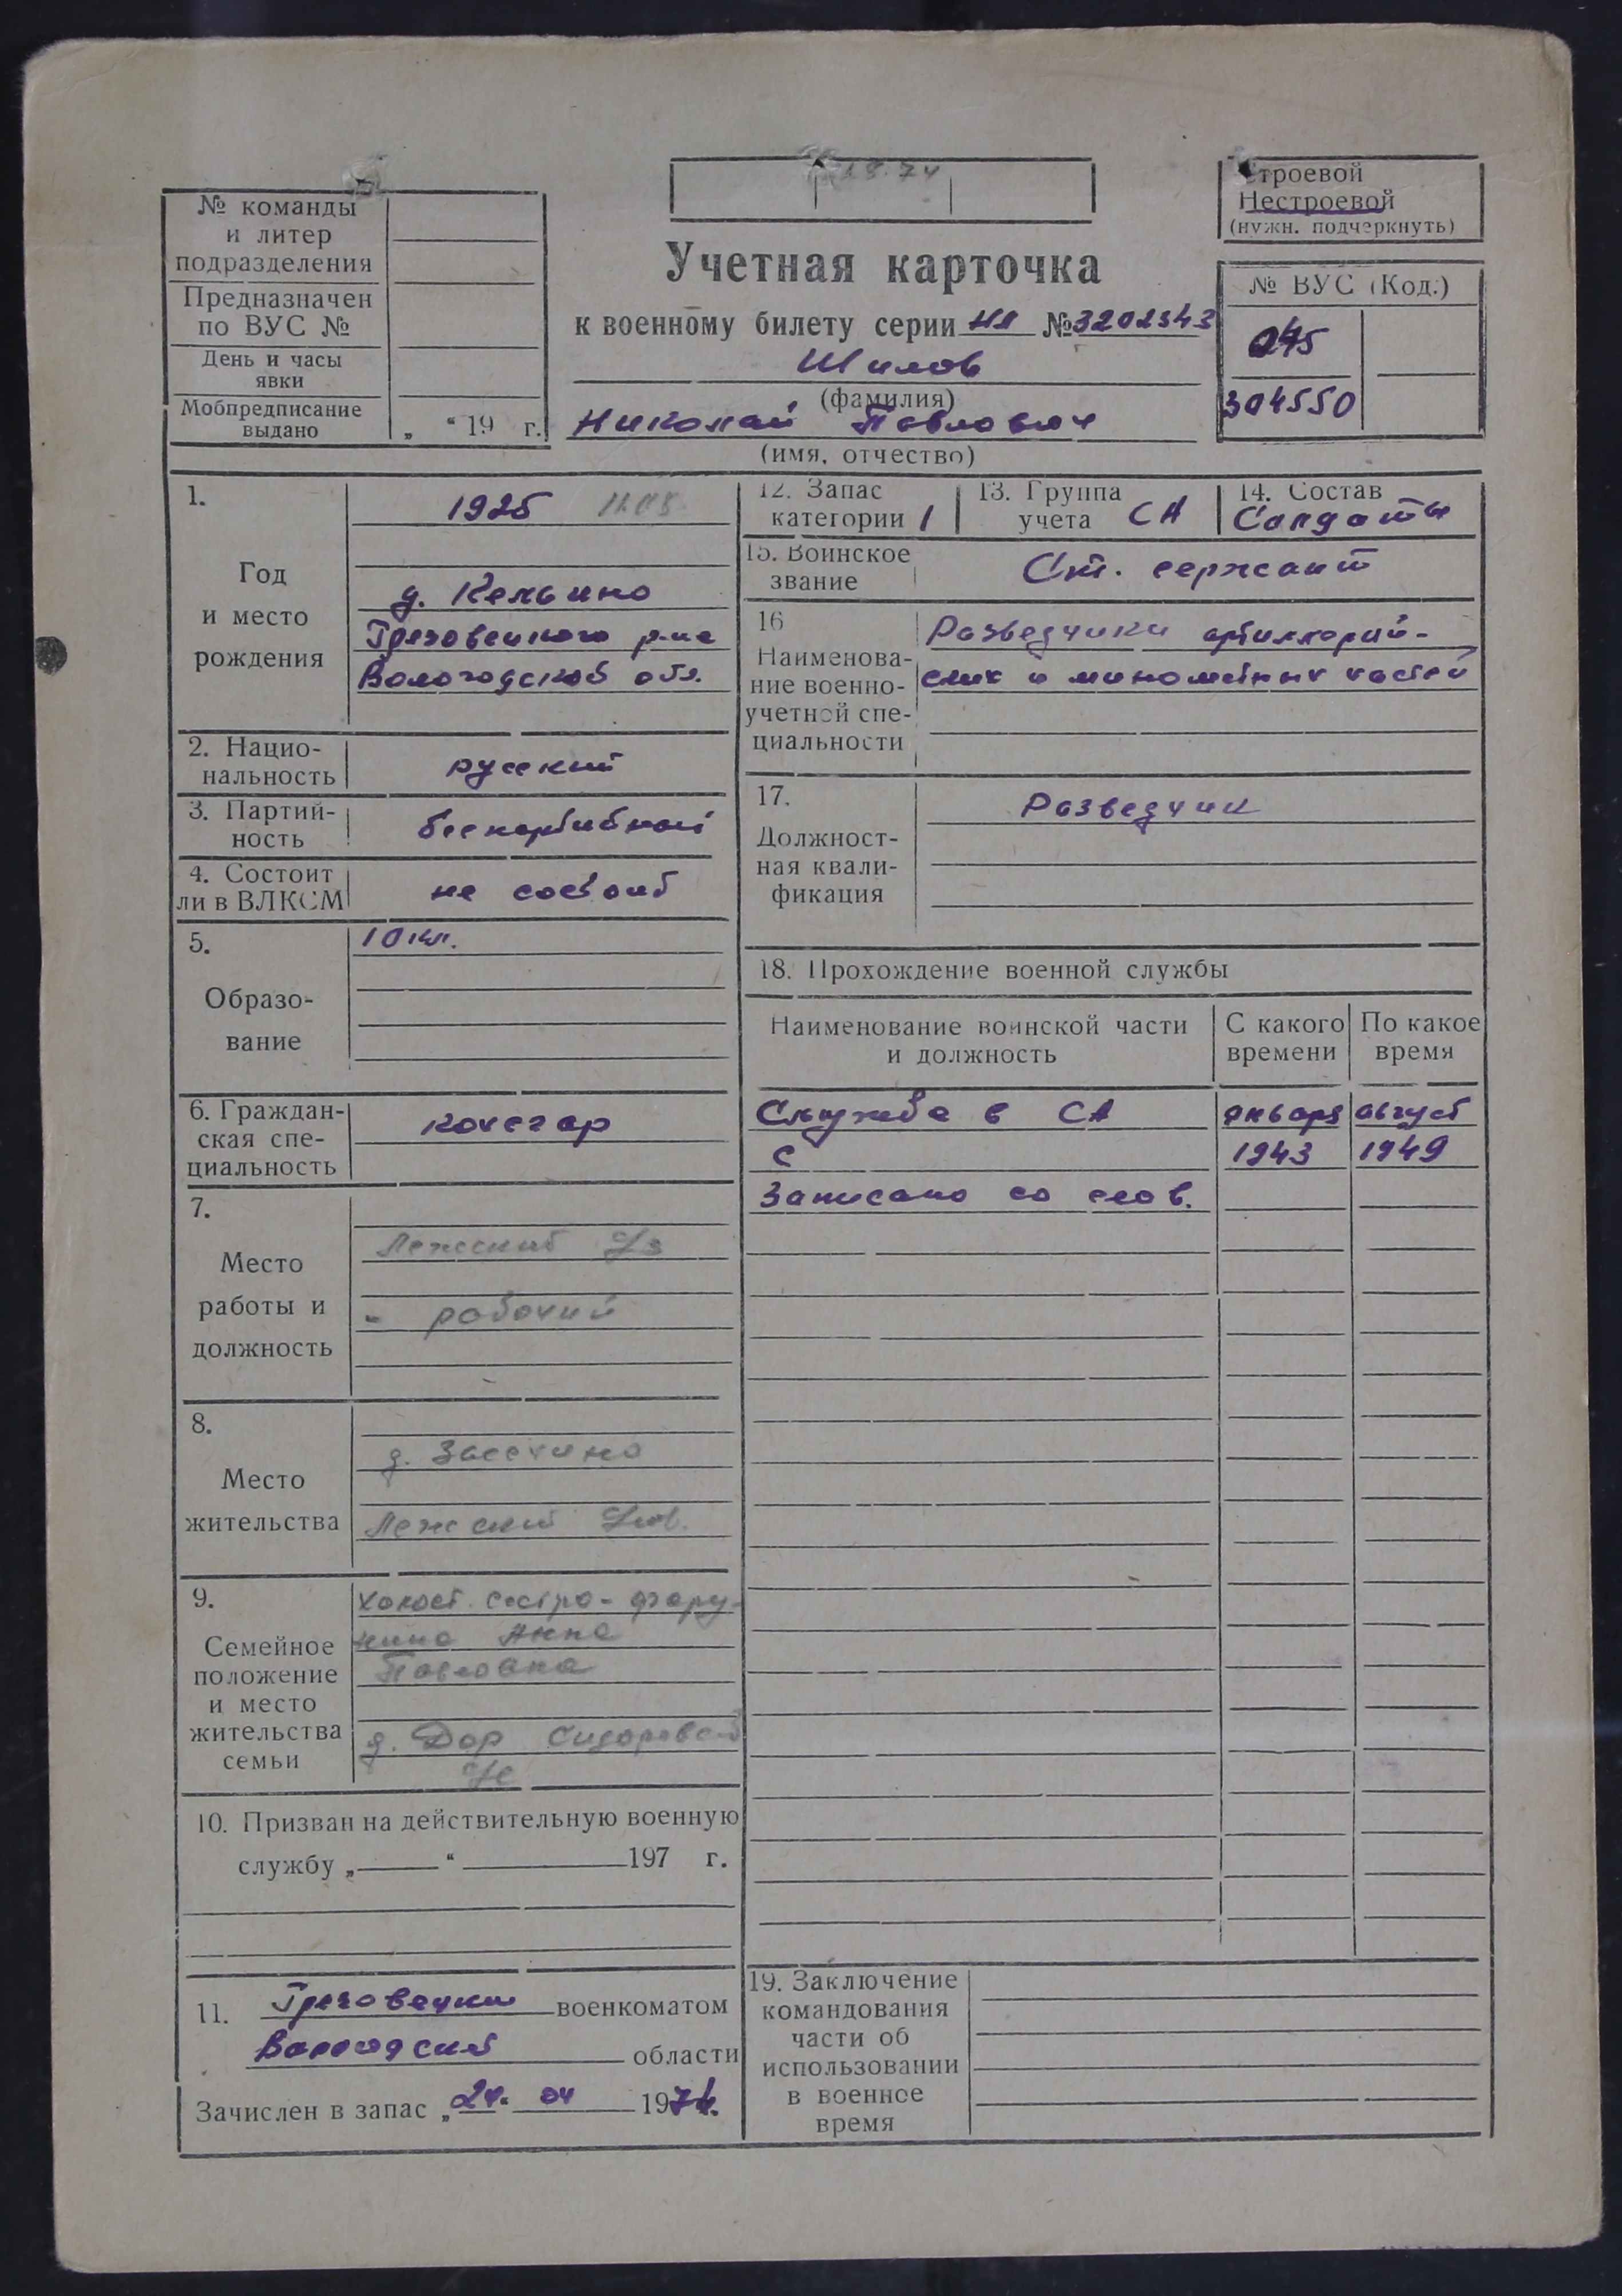 18.74
№ команды
и литер
подразделения
Предназначен
по ВУС №
День и часы
явки
Мобпредписание
выдано „ “ 19 г.
Учетная карточка
к военному билету серии НЛ № 3202343
Шилов
(фамилия)
Николай Павлович
(имя, отчество)
Строевой
Нестроевой
(нужн. подчеркнуть)
№ ВУС (Код.)
045
304550
1.
Год
и место
рождения
1925 11.05
д. Кельино
Грязовецкого р-на
Вологодской обл.
2. Нацио-
нальность
русский
3. Партий-
ность
беспартийный
4. Состоит
ли в ВЛКСМ
не состоит
5.
Образо-
вание
10 кл.
6. Граждан-
ская спе-
циальность
кочегар
7.
Место
работы и
должность
Лежский
- рабочий
8.
Место
жительства
д. Засечино
Лежский
9.
Семейное
положение
и место
жительства
семьи
холост. сестра -
Анна
Павловна
д. Дор Сидоровск
10. Призван на действительную военную
службу „ “ 197 г.
11. Грязовецким военкоматом
Вологодской области
Зачислен в запас „24“ 04 1974.
12. Запас
категории 1
13. Группа
учета СА
14. Состав
Солдаты
15. Воинское
звание
Ст. сержант
16
Наименова-
ние военно-
учетной спе-
циальности
Разведчики артиллерий-
ских и минометных частей
17.
Должност-
ная квали-
фикация
Разведчик
18. Прохождение военной службы
Наименование воинской части
и должность
С какого
времени
По какое
время
Служба в СА январь август
с 1943 1949
Записано со слов.
19. Заключение
командования
части об
использовании
в военное
время